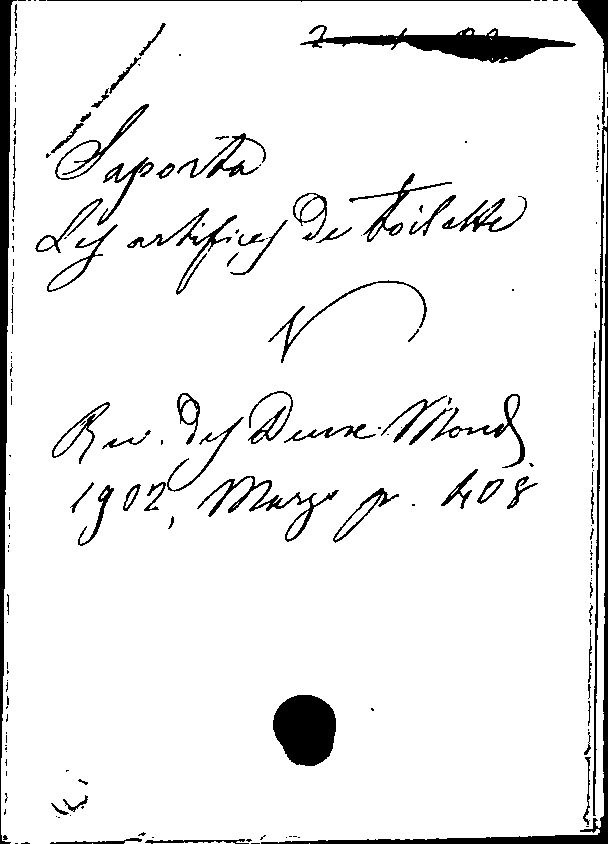 Saporta
Les artifices de toilette
Rev. des Deux Monds
1902, Marzo p. 408